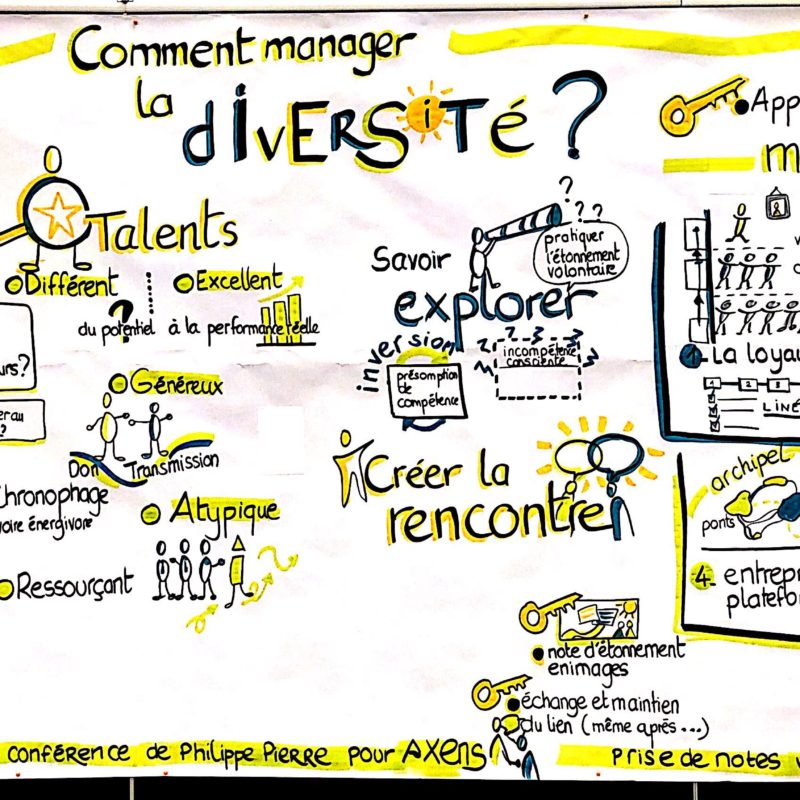 Comment manager
la
diVERSiTé ?
Talents
Différent
Excellent
du potentiel à la performance réelle
?
Généreux
Don Transmission
Chronophage
énergivore
Atypique
Ressourçant
Savoir
explorer
? ? ?
pratiquer
l'étonnement
volontaire
inversion
présomption
de
compétence
incompétence
consciente
Créer la
rencontre
note d'étonnement
en images
échange et maintien
du lien (même après ...)
1 La
1 2 3
archipel
ponts
4
conférence de Philippe Pierre pour AXENS
Prise de notes